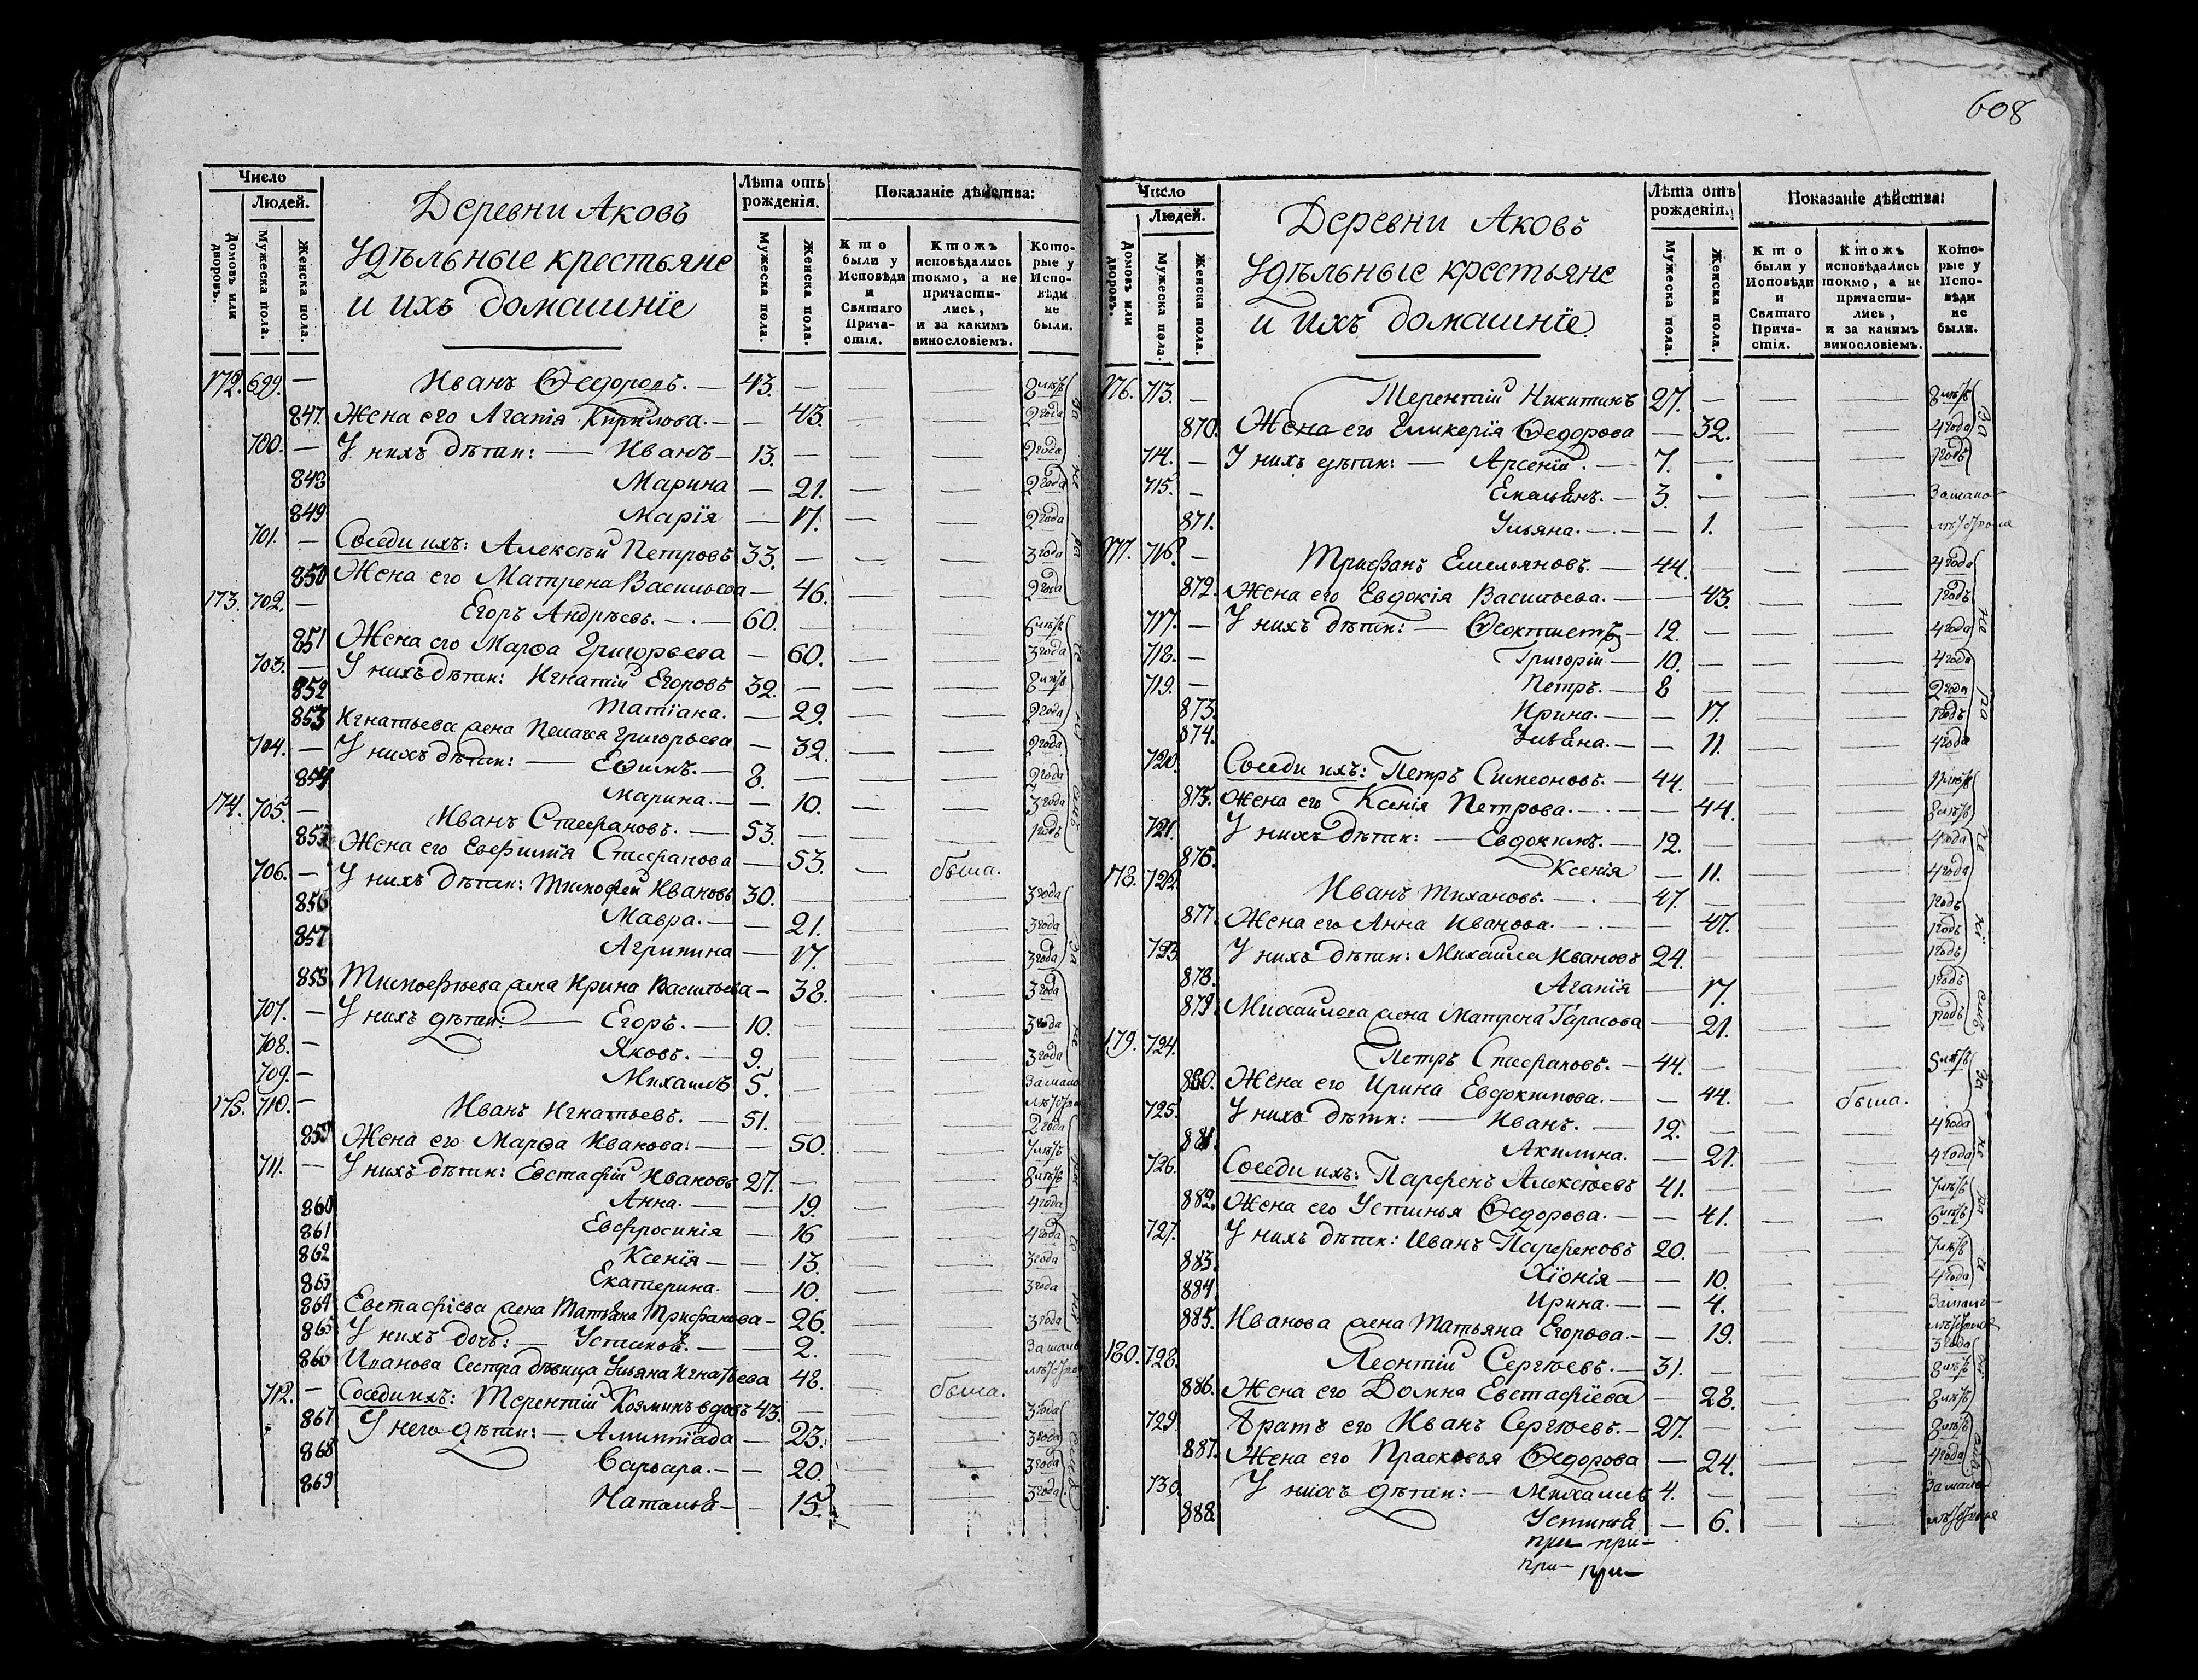 608
Число
Людей.
Домовъ или дворовъ.
Мужеска пола.
Женска пола.
Деревни Аковъ
Удѣльные крестьяне
и ихъ домашнїе
Лѣта отъ рожденія.
Мужеска пола.
Женска пола.
Показаніе дѣйства:
Кто были у Исповѣди и Святаго Причастія.
Ктожъ исповѣдались токмо, а не причастились, и за какимъ винословіемъ.
Которые у Исповѣди не были.
172. 699. — Иванъ Ѳедоровъ. — 43. — — — 8 лѣтъ
847. Жена его Агапія Кирилова. — — 43. — — 2 года
700. — У нихъ дѣти: — Иванъ — 13. — — — 2 года
848 Марина — 21. — — 2 года
849 Марїя — 17. — — 2 года
701. — Соседи ихъ: Алексѣй Петровъ 33. — — — 3 года
850 Жена его Матрена Васильева — 46. — — 2 года
173. 702. — Егоръ Андрѣевъ. — 60. — — — 6 лѣтъ
851 Жена его Марѳа Григорьева — 60. — — 3 года
703. — У нихъ дѣти: Игнатій Егоровъ 32. — — — 8 лѣтъ
852 Татїана. — 29. — — 2 года
853 Игнатьева жена Пелагея Григорьева — 32. — — 2 года
704. — У нихъ дѣти: — Еѳимъ. — 8. — — — 2 года
854 Марина. — — 10. — — 3 года
174. 705. — Иванъ Стефановъ. — 53. — — — 1 годъ
855 Жена его Евфимїя Стефанова — 53. — была.
706. — У нихъ дѣти: Тимофей Ивановъ 30. — — — 3 года
856 Мавра. — — 21. — — 3 года
857 Агрипина — — 17. — — 3 года
858 Тимофѣева жена Ирина Васильева — 38. — — 3 года
707. — У нихъ дѣти: — Егоръ. — 10. — — — 3 года
708. — Яковъ. — 9. — — — 3 года
709. — Михаилъ 5. — — — За мало
лѣтствомъ
175. 710. — Иванъ Игнатьевъ. — 51. — — — 2 года
859 Жена его Марѳа Иванова: — — 50. — — 7 лѣтъ
711. — У нихъ дѣти: Евстафій Ивановъ 27. — — — 8 лѣтъ
860 Анна. — — 19. — — 4 года
861 Евфросинія — 16 — — 4 года
862 Ксенїя — — 13. — — 3 года
863 Екатерина. — 10. — — 3 года
864 Евстафіева жена Татьяна Трифанова — 26. — — 3 года
865 У нихъ дочь: — Устинья. — — 2. — — За мало
лѣтствомъ
866 Иванова Сестра дѣвица Ульяна Игнатьева 48. — была.
712. — Соседи ихъ: Терентій Козминъ вдовъ 43. — — — 3 года
867 У него дѣти: — Алимпіада — 23. — — 3 года
868 Варвара. — — 20. — — 3 года
869 Наталья — — 15. — — 3 года
Число
Людей.
Домовъ или дворовъ.
Мужеска пола.
Женска пола.
Деревни Аковъ
Удѣльные крестьяне
и ихъ домашнїе
Лѣта отъ рожденія.
Мужеска пола.
Женска пола.
Показаніе дѣйства:
Кто были у Исповѣди и Святаго Причастія.
Ктожъ исповѣдались токмо, а не причастились, и за какимъ винословіемъ.
Которые у Исповѣди не были.
176. 713. — Терентій Никитинъ 27. — — — 8 лѣтъ
870. Жена его Гликерія Ѳедорова — 32. — — 4 года
714. — У нихъ дѣти: — Арсеній. — 7. — — — 1 годъ
715. — Емельянъ. — 3. — — — За мало
871. Ульяна. — — 1. — — лѣтствомъ
177. 716. — Трифанъ Емельяновъ. — 44. — — — 4 года
872. Жена его Евдокія Васильева. — — 43. — — 1 годъ
717. — У нихъ дѣти: — Ѳеоктистъ — 12. — — — 4 года
718. — Григорій. — 10. — — — 4 года
719. — Петръ. — 8 — — — 2 года
873. Ирина. — — 17. — — 1 годъ
874. Ульяна. — — 11. — — 4 года
720. Соседи ихъ: Петръ Симеоновъ. — 44. — — — 11 лѣтъ
875. Жена его Ксенія Петрова. — — 44. — — 8 лѣтъ
721. У нихъ дѣти: — Евдокимъ. — 12. — — — 4 года
876. Ксенія — 11. — — 4 года
178. 722. Иванъ Тихановъ. — 47. — — — 1 годъ
877. Жена его Анна Иванова. — — 47. — — 1 годъ
723. У нихъ дѣти: Михаила Ивановъ 24. — — — 1 годъ
878. Агапїя — 17. — — 1 годъ
879. Михайлова жена Матрена Тарасова — 21. — — 1 годъ
179. 724. Петръ Стефановъ. — 44. — — — 5 лѣтъ
880. Жена его Ирина Евдокимова. — — 44. — была.
725. У нихъ дѣти: — Иванъ. — 12. — — — 4 года
881. Акилина. — 21. — — 4 года
726. Соседи ихъ: Парфенъ Алексѣевъ 41. — — — 7 лѣтъ
882. Жена его Устинья Ѳедорова. — — 41. — — 6 лѣтъ
727. У нихъ дѣти: Иванъ Парфеновъ 20. — — — 7 лѣтъ
883. Хіонія — — 10. — — 4 года
884. Ирина. — — 4. — — За мало
лѣтствомъ
885. Иванова жена Татьяна Егорова. — — 19. — — 3 года
180. 728. Леонтій Сергѣевъ. — 31. — — — 8 лѣтъ
886. Жена его Домна Евстафіева — 28. — — 8 лѣтъ
729. Братъ его Иванъ Сергѣевъ. — 27. — — — 8 лѣтъ
887. Жена его Прасковья Ѳедорова — 24. — — 4 года
730. У нихъ дѣти: — Михаилъ 4. — — — За мало
888. Устинья — 6. — — лѣтствомъ
при при—
при— при—